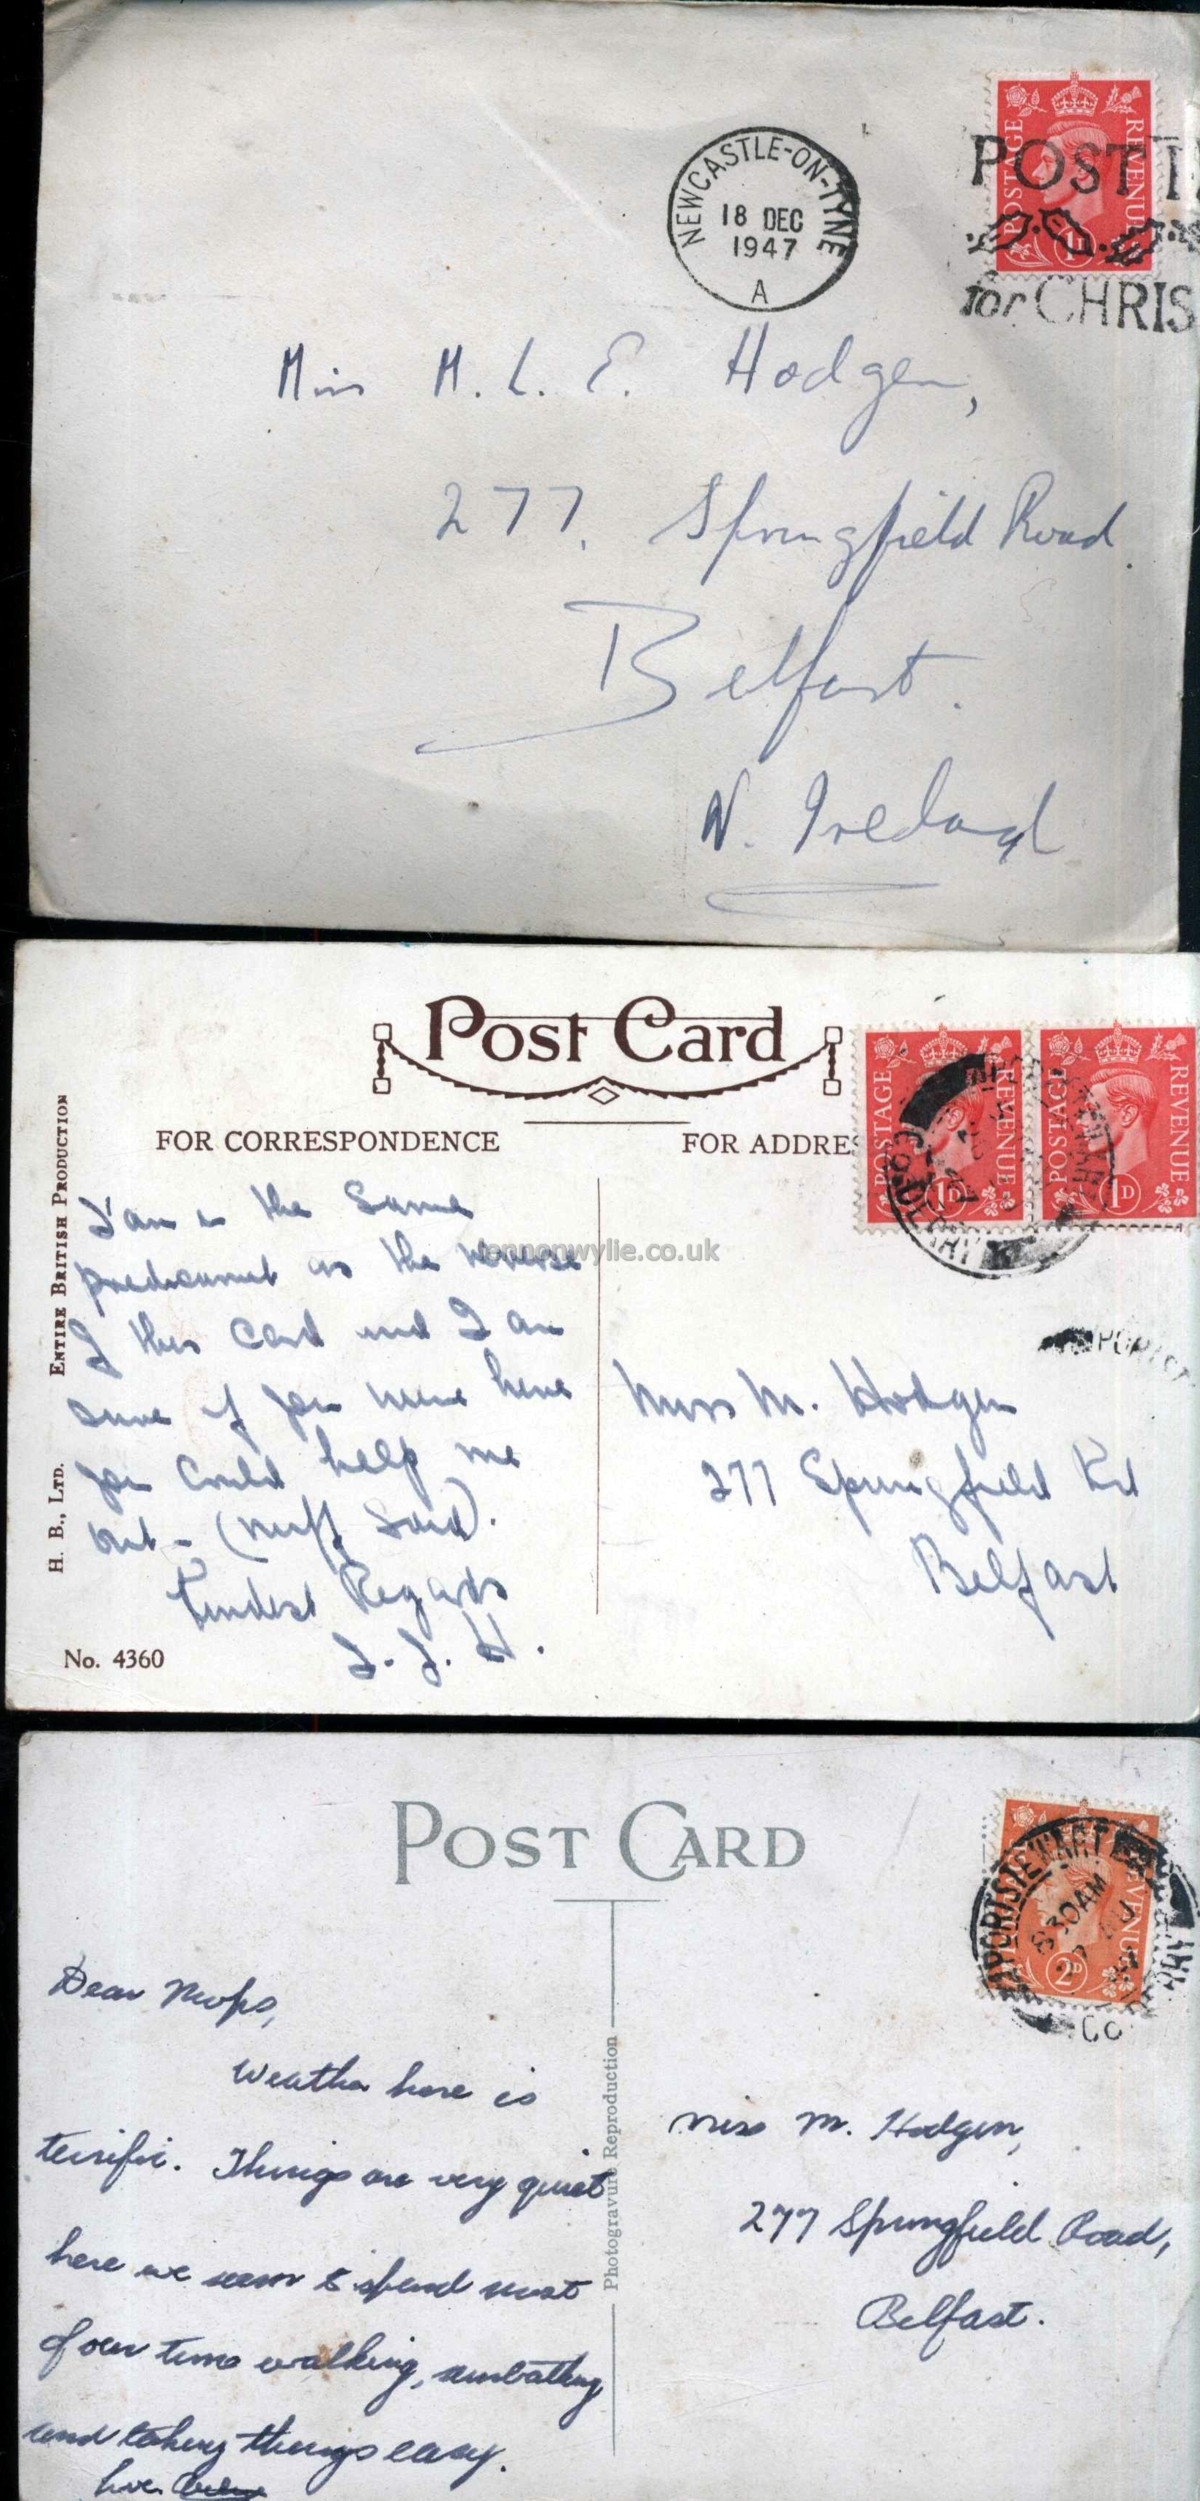 NEWCASTLE-ON-TYNE
18 DEC
1947
A
POSTAGE REVENUE
1D
POST
for CHRIS
Miss M. L. E. Hodgen,
277, Springfield Road.
Belfast.
N. Ireland
Post Card
FOR CORRESPONDENCE
FOR ADDRES
POSTAGE REVENUE
1D
POSTAGE REVENUE
1D
ENTIRE BRITISH PRODUCTION
H. B., LTD.
lennonwylie.co.uk
I am in the same
predicament as the reverse
of this card and I am
sure if you were here
you could help me
out - (nuff said).
Kindest Regards
J. J. H.
No. 4360
Miss M. Hodgen
277 Springfield Rd
Belfast
POST CARD
PORTSTEWART
8 30AM
2D
CO
Photogravure Reproduction
Dear Mops,
Weather here is
terrific. Things are very quiet
here we seem to spend most
of our time walking, sunbathing
and taking things easy.
Miss M. Hodgen,
277 Springfield Road,
Belfast.